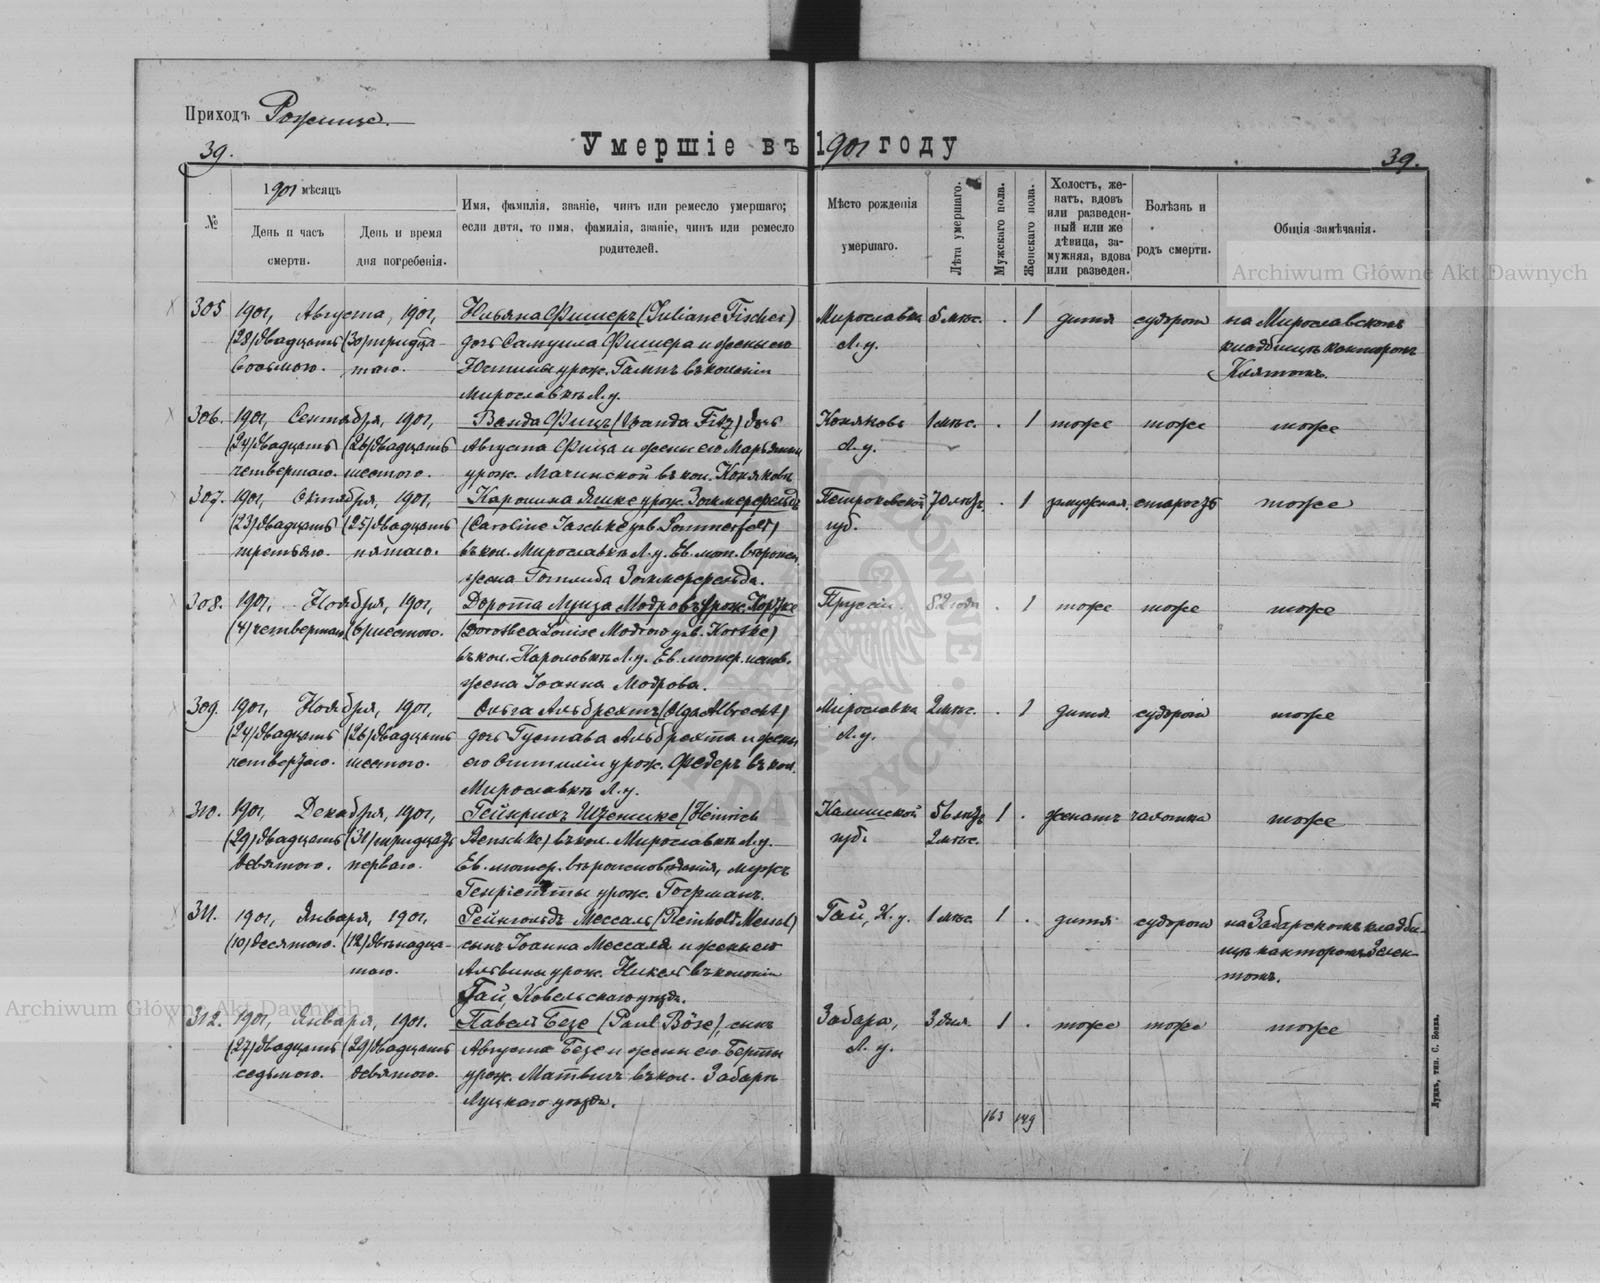 Приходъ Рожище.
Умершіе въ 1901 году
39.
39.
№
1901 мѣсяцъ
День и часъ
смерти.
День и время
дня погребенія.
Имя, фамилія, званіе, чинъ или ремесло умершаго;
если дитя, то имя, фамилія, званіе, чинъ или ремесло
родителей.
Мѣсто рожденія
умершаго.
Лѣта умершаго.
Мужскаго пола.
Женскаго пола.
Холостъ, же-
натъ, вдовъ
или разведен-
ный или же
дѣвица, за-
мужняя, вдова
или разведен.
Болѣзнь и
родъ смерти.
Общія замѣчанія.
305 1901, Августа, 1901, Юльяна Фишеръ (Juliane Fischer) Мирославка 5 мѣс. . 1 дитя судорога на Мирославскомъ
(28) двадцать (30) тридца- дочь Самуила Фишера и жены его Л. у. кладбищѣ канторомъ
восьмого. таго. Юстины урож. Гампъ въ колоніи
Мирославкѣ Л. у.
306. 1901, Сентября, 1901, Ванда Фицъ (Wanda Fitz) дочь Коняковъ 1 мѣс. . 1 тоже тоже тоже
(24) двадцать (26) двадцать Августа Фица и жены его Марьянны Л. у.
четвертаго. шестого. урож. Мачинской въ кол. Коняковъ
307. 1901, Октября, 1901, Каролина Яшке урож. Зоммерфельдъ Петроковской 70 лѣтъ . 1 замужная старость тоже
(23) двадцать (25) двадцать (Caroline Jaschke geb. Sommerfeldt) губ.
третьяго. пятаго. въ кол. Мирославкѣ Л. у. Ев. лют.
жена Готлиба Зоммерфельда.
308. 1901, Ноября, 1901, Доротта Луиза Модровъ урож. Пруссія 82 года . 1 тоже тоже тоже
(4) четвертаго (6) шестого. (Dorothea Louise Modrow geb. Korthe)
въ кол. Кароловкѣ Л. у. Ев. лютер. испов.
жена Іоанна Модрова.
309. 1901, Ноября, 1901, Ольга Альбрехтъ (Olga Albrecht) Мирославка 2 мѣс. . 1 дитя судорога тоже
(24) двадцать (26) двадцать дочь Густава Альбрехта и жены Л. у.
четвертаго. шестого. его Оттиліи урож. Федеръ въ кол.
Мирославкѣ Л. у.
310. 1901, Декабря, 1901, Гейнрихъ Штеншке (Heinrich Калишской 56 лѣтъ 1 . женатъ чахотка тоже
(29) двадцать (31) тридцать Stenschke) въ кол. Мирославкѣ Л. у. губ. 2 мѣс.
девятого. перваго. Ев. лютер. вѣроисповѣданія, мужъ
Генріетты урож. Гофманъ.
311. 1901, Января, 1901, Рейнгольдъ Мессаль (Reinhold Messal) Гай, К. у. 1 мѣс. 1 . дитя судорога на Забарскомъ кладби-
(10) десятого. (12) двѣнадца- сынъ Іоанна Мессаля и жены его щѣ канторомъ
таго. Альвины урож. Никель въ колоніи
Гай, Ковельскаго уѣзда.
312. 1901, Января, 1901. Павелъ Безе (Paul Böse), сынъ Забара, 3 дня. 1 . тоже тоже тоже
(27) двадцать (29) двадцать Августа Безе и жены его Берты Л. у.
седьмого. девятого. урож. Матвигъ въ кол. Забарѣ
Луцкаго уѣзда.
163 149
Луцкъ, тип. С. Бокна.
Archiwum Główne Akt Dawnych
Archiwum Główne Akt Dawnych